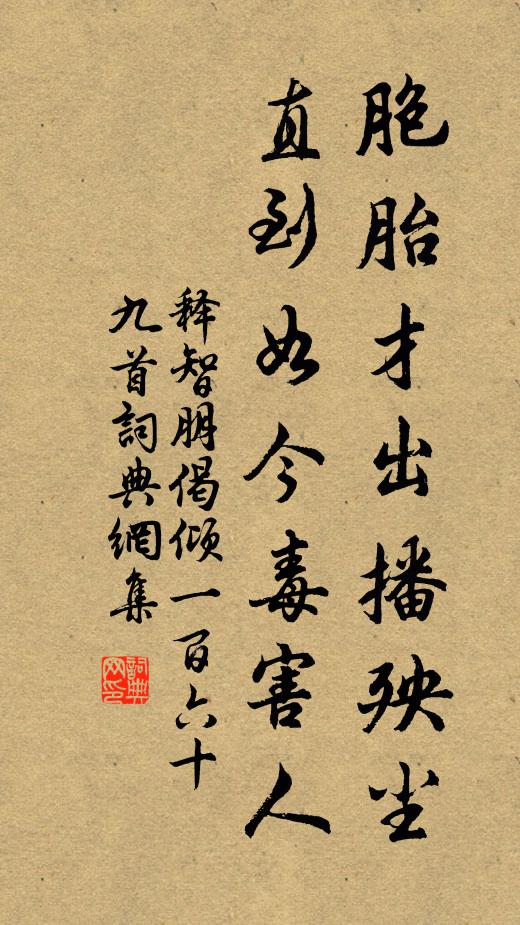 胞胎才出播殃尘
直到如今毒害人
释智朋偈倾一百六十
九首詞典網集
詞典网印